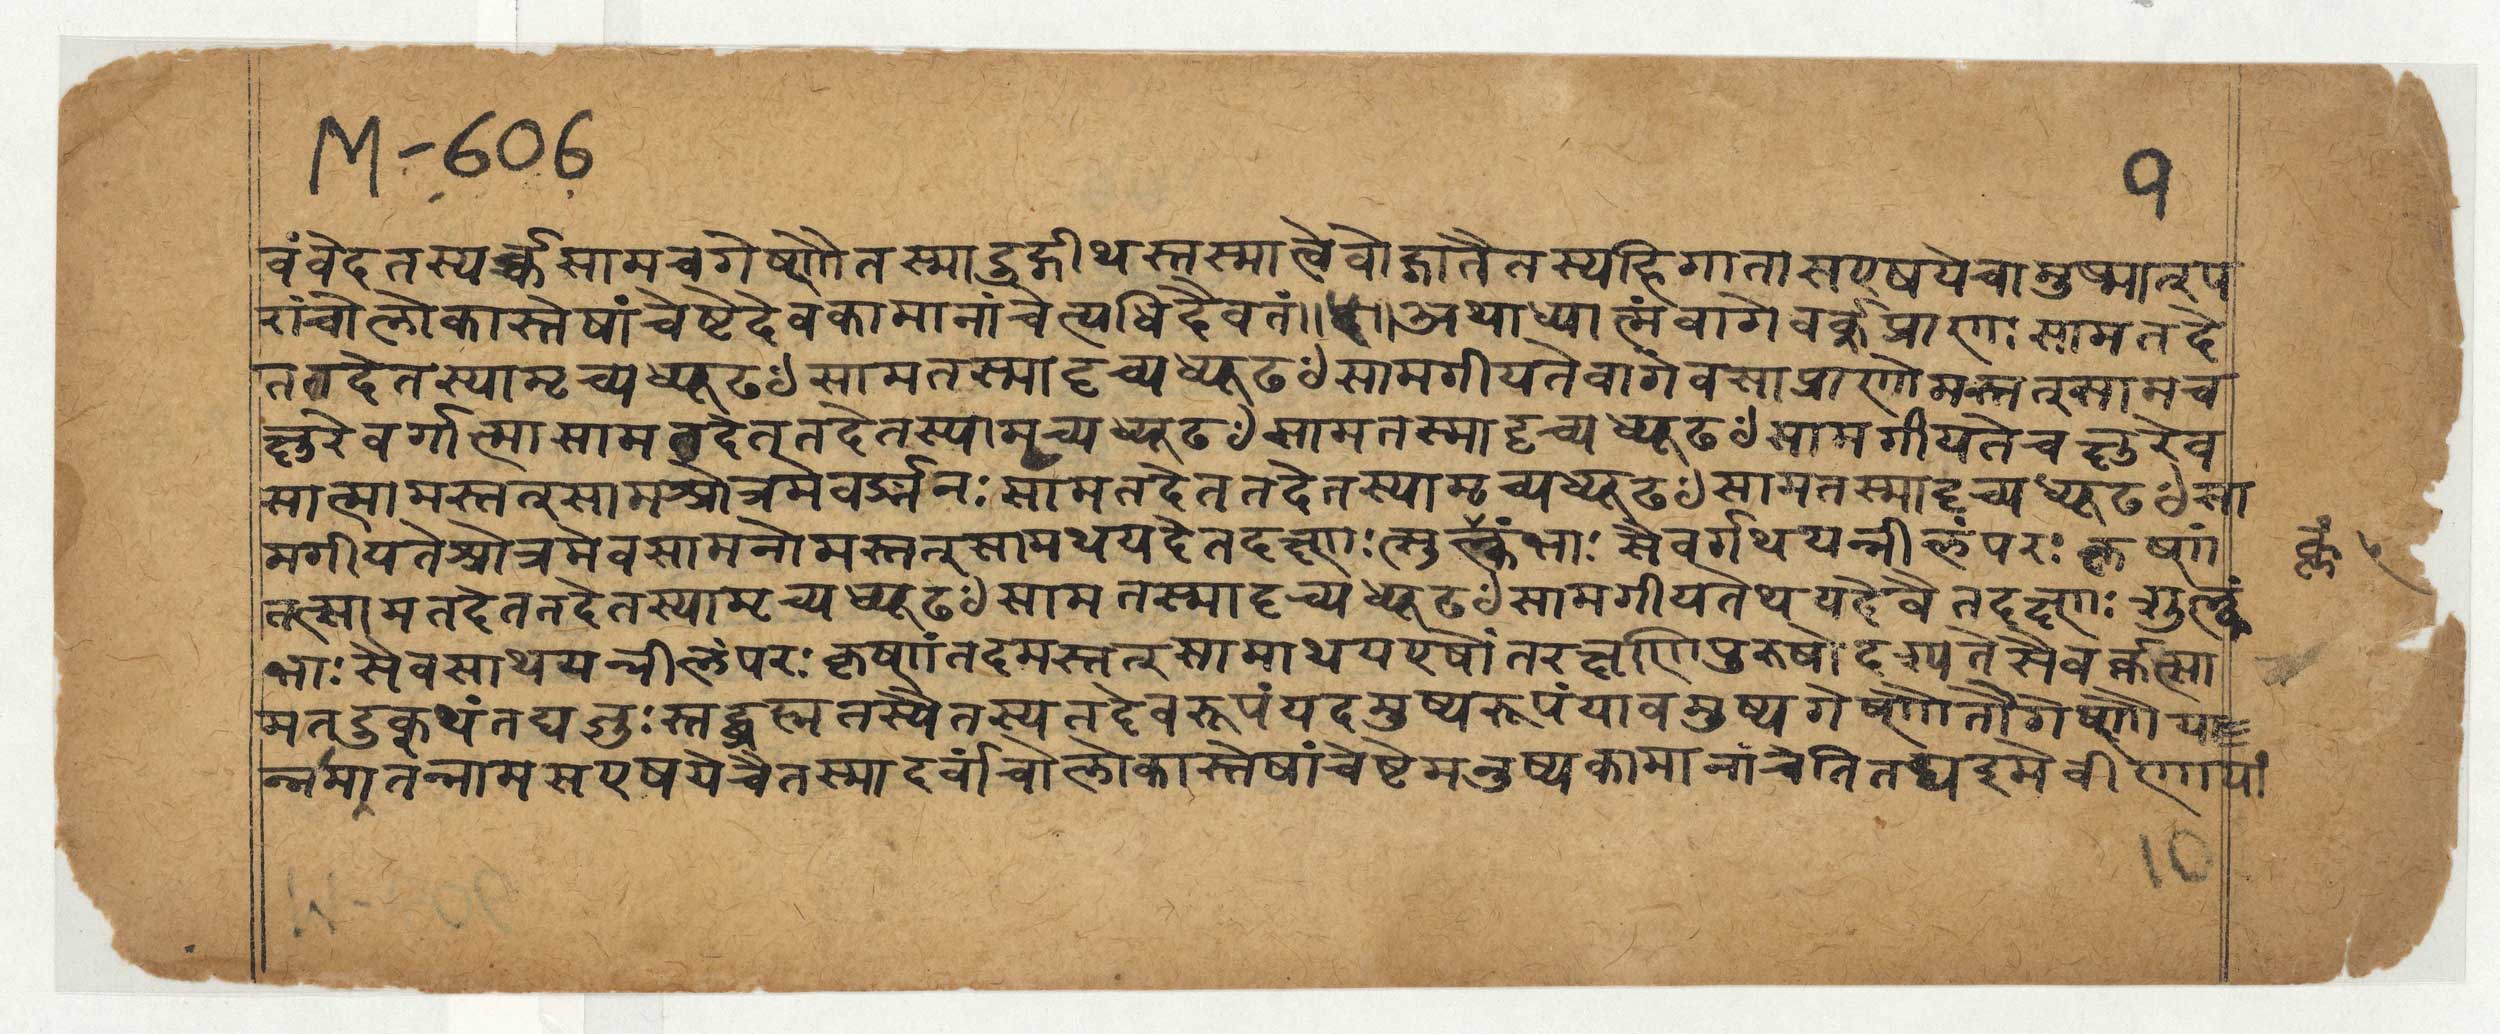 M-606
१
वं वेद तस्यर्क्च साम च गेष्णौ तस्मादुद्गीथस्तस्मात्वेवोद्गातैतस्य हि गाता स एष ये चामुष्मात्प
रांचो लोकास्तेषां चेष्टे देवकामानां चेत्यधिदैवतं॥ ॥अथाध्यात्मं वागेवर्क्प्राणः साम तदे
तत्तदेतस्यामृच्यध्यूढꣳ साम तस्मादृच्यध्यूढꣳ साम गीयते वागेव सा प्राणो मस्तत्साम च
क्षुरेवर्गात्मा साम तदेतत्तदेतस्यामृच्यध्यूढꣳ साम तस्मादृच्यध्यूढꣳ साम गीयते चक्षुरेव
सात्मामस्तत्साम श्रोत्रमेवर्ङ्मनः साम तदेतत्तदेतस्यामृच्यध्यूढꣳ साम तस्मादृच्यध्यूढꣳ सा
म गीयते श्रोत्रमेव सा मनो मस्तत्साम थ यदेतदक्ष्णः शुक्लं भाः सैवर्गथ यन्नीलं परः कृष्णं
तत्साम तदेतत्तदेतस्यामृच्यध्यूढꣳ साम तस्मादृच्यध्यूढꣳ साम गीयते थ यदेवैतदक्ष्णः शुक्लं
भाः सैव साथ यन्नीलं परः कृष्णं तदमस्तत्सामाथ य एषोंतरक्षणि पुरुषो दृश्यते सैवर्क्तत्सा
म तदुक्थं तद्यजुः स्तद्ब्रह्म तस्यैतस्य तदेव रूपं यदमुष्य रूपं यावमुष्य गेष्णौ तौ गेष्णौ या
न्नमा तन्नाम स एष ये चैतस्मादर्वांचो लोकास्तेषां चेष्टे मनुष्यकामानां चेति तद्य इमे वीणायां
10